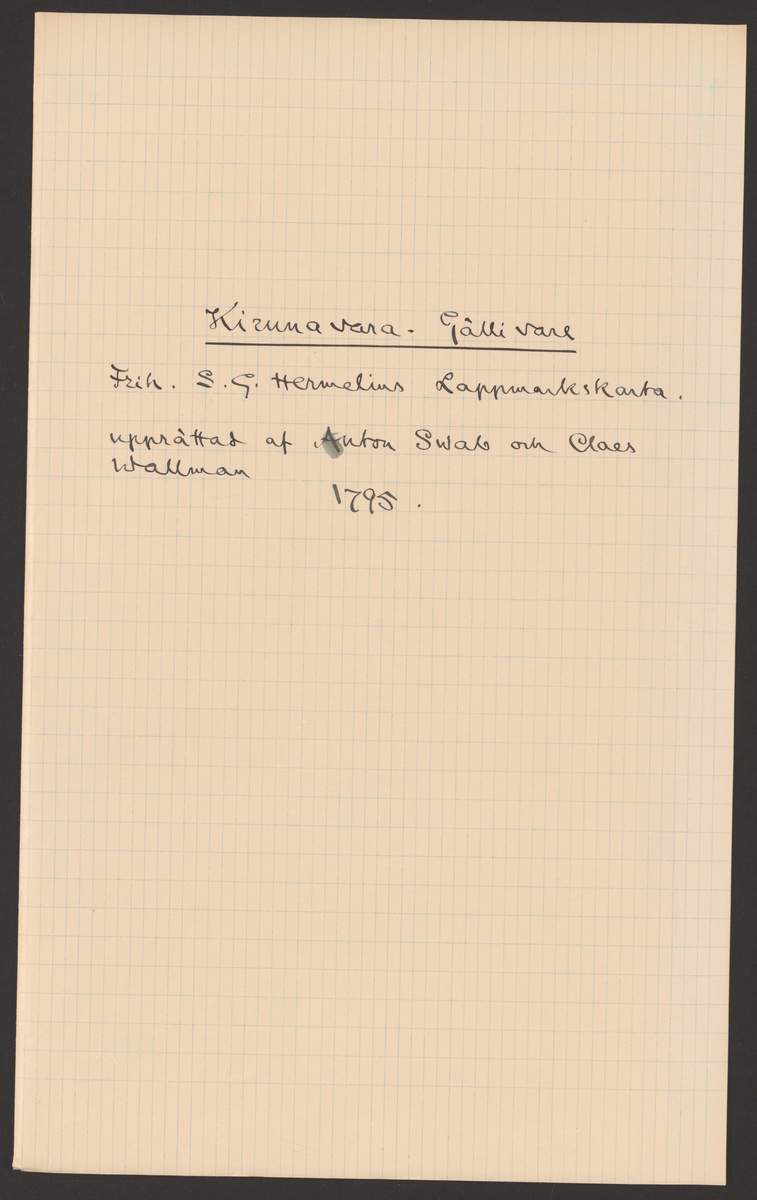 Kirunavara - Gällivare
Frih. S. G. Hermelins Lappmarkskarta.
upprättad af Anton Swab och Claes
Wallman
1795.